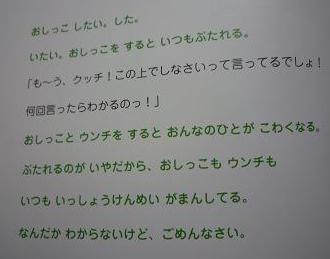 おしっこ したい。した。
いたい。おしっこを すると いつもぶたれる。
「も〜う、クッチ！この上でしなさいって言ってるでしょ！
何回言ったらわかるのっ！」
おしっこと ウンチを すると おんなのひとが こわくなる。
ぶたれるのが いやだから、おしっこも ウンチも
いつも いっしょうけんめい がまんしてる。
なんだか わからないけど、ごめんなさい。